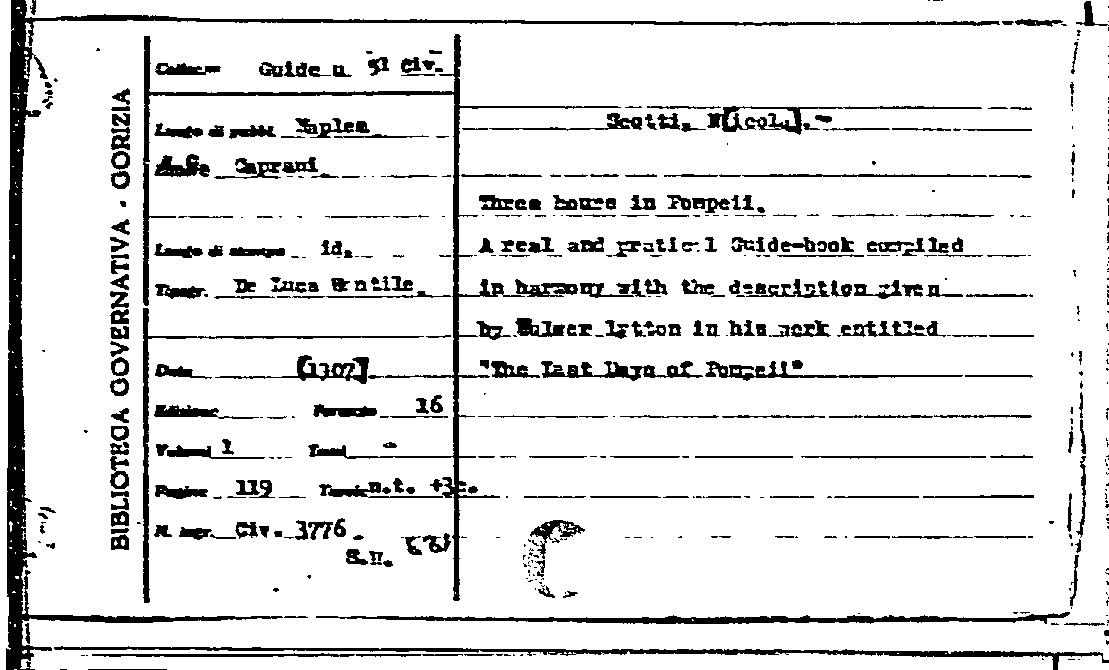 BIBLIOTECA GOVERNATIVA - GORIZIA
Colloc.ne Guide n 51 Civ.
Luogo di pubbl. Naples
Editore Caprani
Luogo di stampa id.
Tipogr. De Luca Gentile.
Data [1907]
Edizione Formato 16
Volumi 1 Tomi -
Pagine 119 Tavole n.t. +3c.
N. ingr. Civ. 3776.
S.n.
Scotti, N[icola].-
Three hours in Pompeii.
A real and pratical Guide-book compiled
in harmony with the description given
by Bulwer Lytton in his work entitled
"The Last Days of Pompeii"